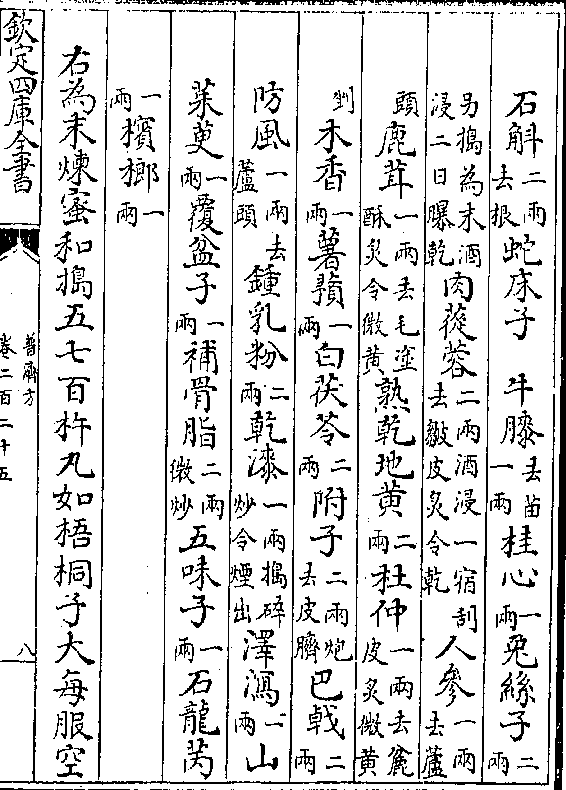 石斛二兩去根蛇床子　牛膝去苗一兩桂心一兩兔絲子二兩
另搗為末酒浸二日曝乾肉蓯蓉二兩酒浸一宿刮去皺皮炙令乾人參一兩去蘆
頭鹿茸一兩去毛塗酥炙令微黄熟乾地黄二兩杜仲一兩去麄皮炙微黄
剉木香一兩薯蕷一兩白茯苓二兩附子二兩炮去皮臍巴戟二兩
防風一兩去蘆頭鍾乳粉二兩乾漆一兩搗碎炒令煙出澤瀉一兩山
茱萸一兩覆盆子一兩補骨脂二兩微炒五味子一兩石龍芮
一兩檳榔一兩
右為末煉蜜和搗五七百杵丸如梧桐子大每服空
欽定四庫全書
普濟方
卷二百二十五
八